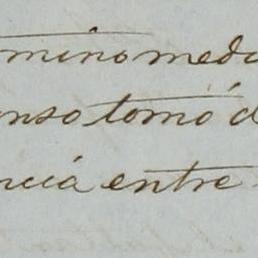 mino medi
onso tomó d
ncia entre